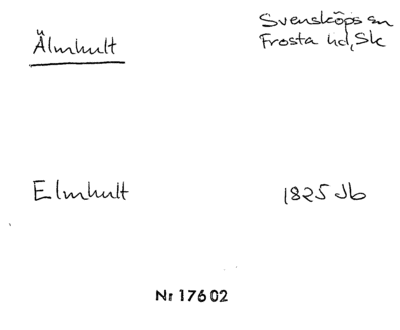 Älmhult
Svensköps sn
Frosta hd, Sk
Elmhult
1825 Jb
Nr 17602